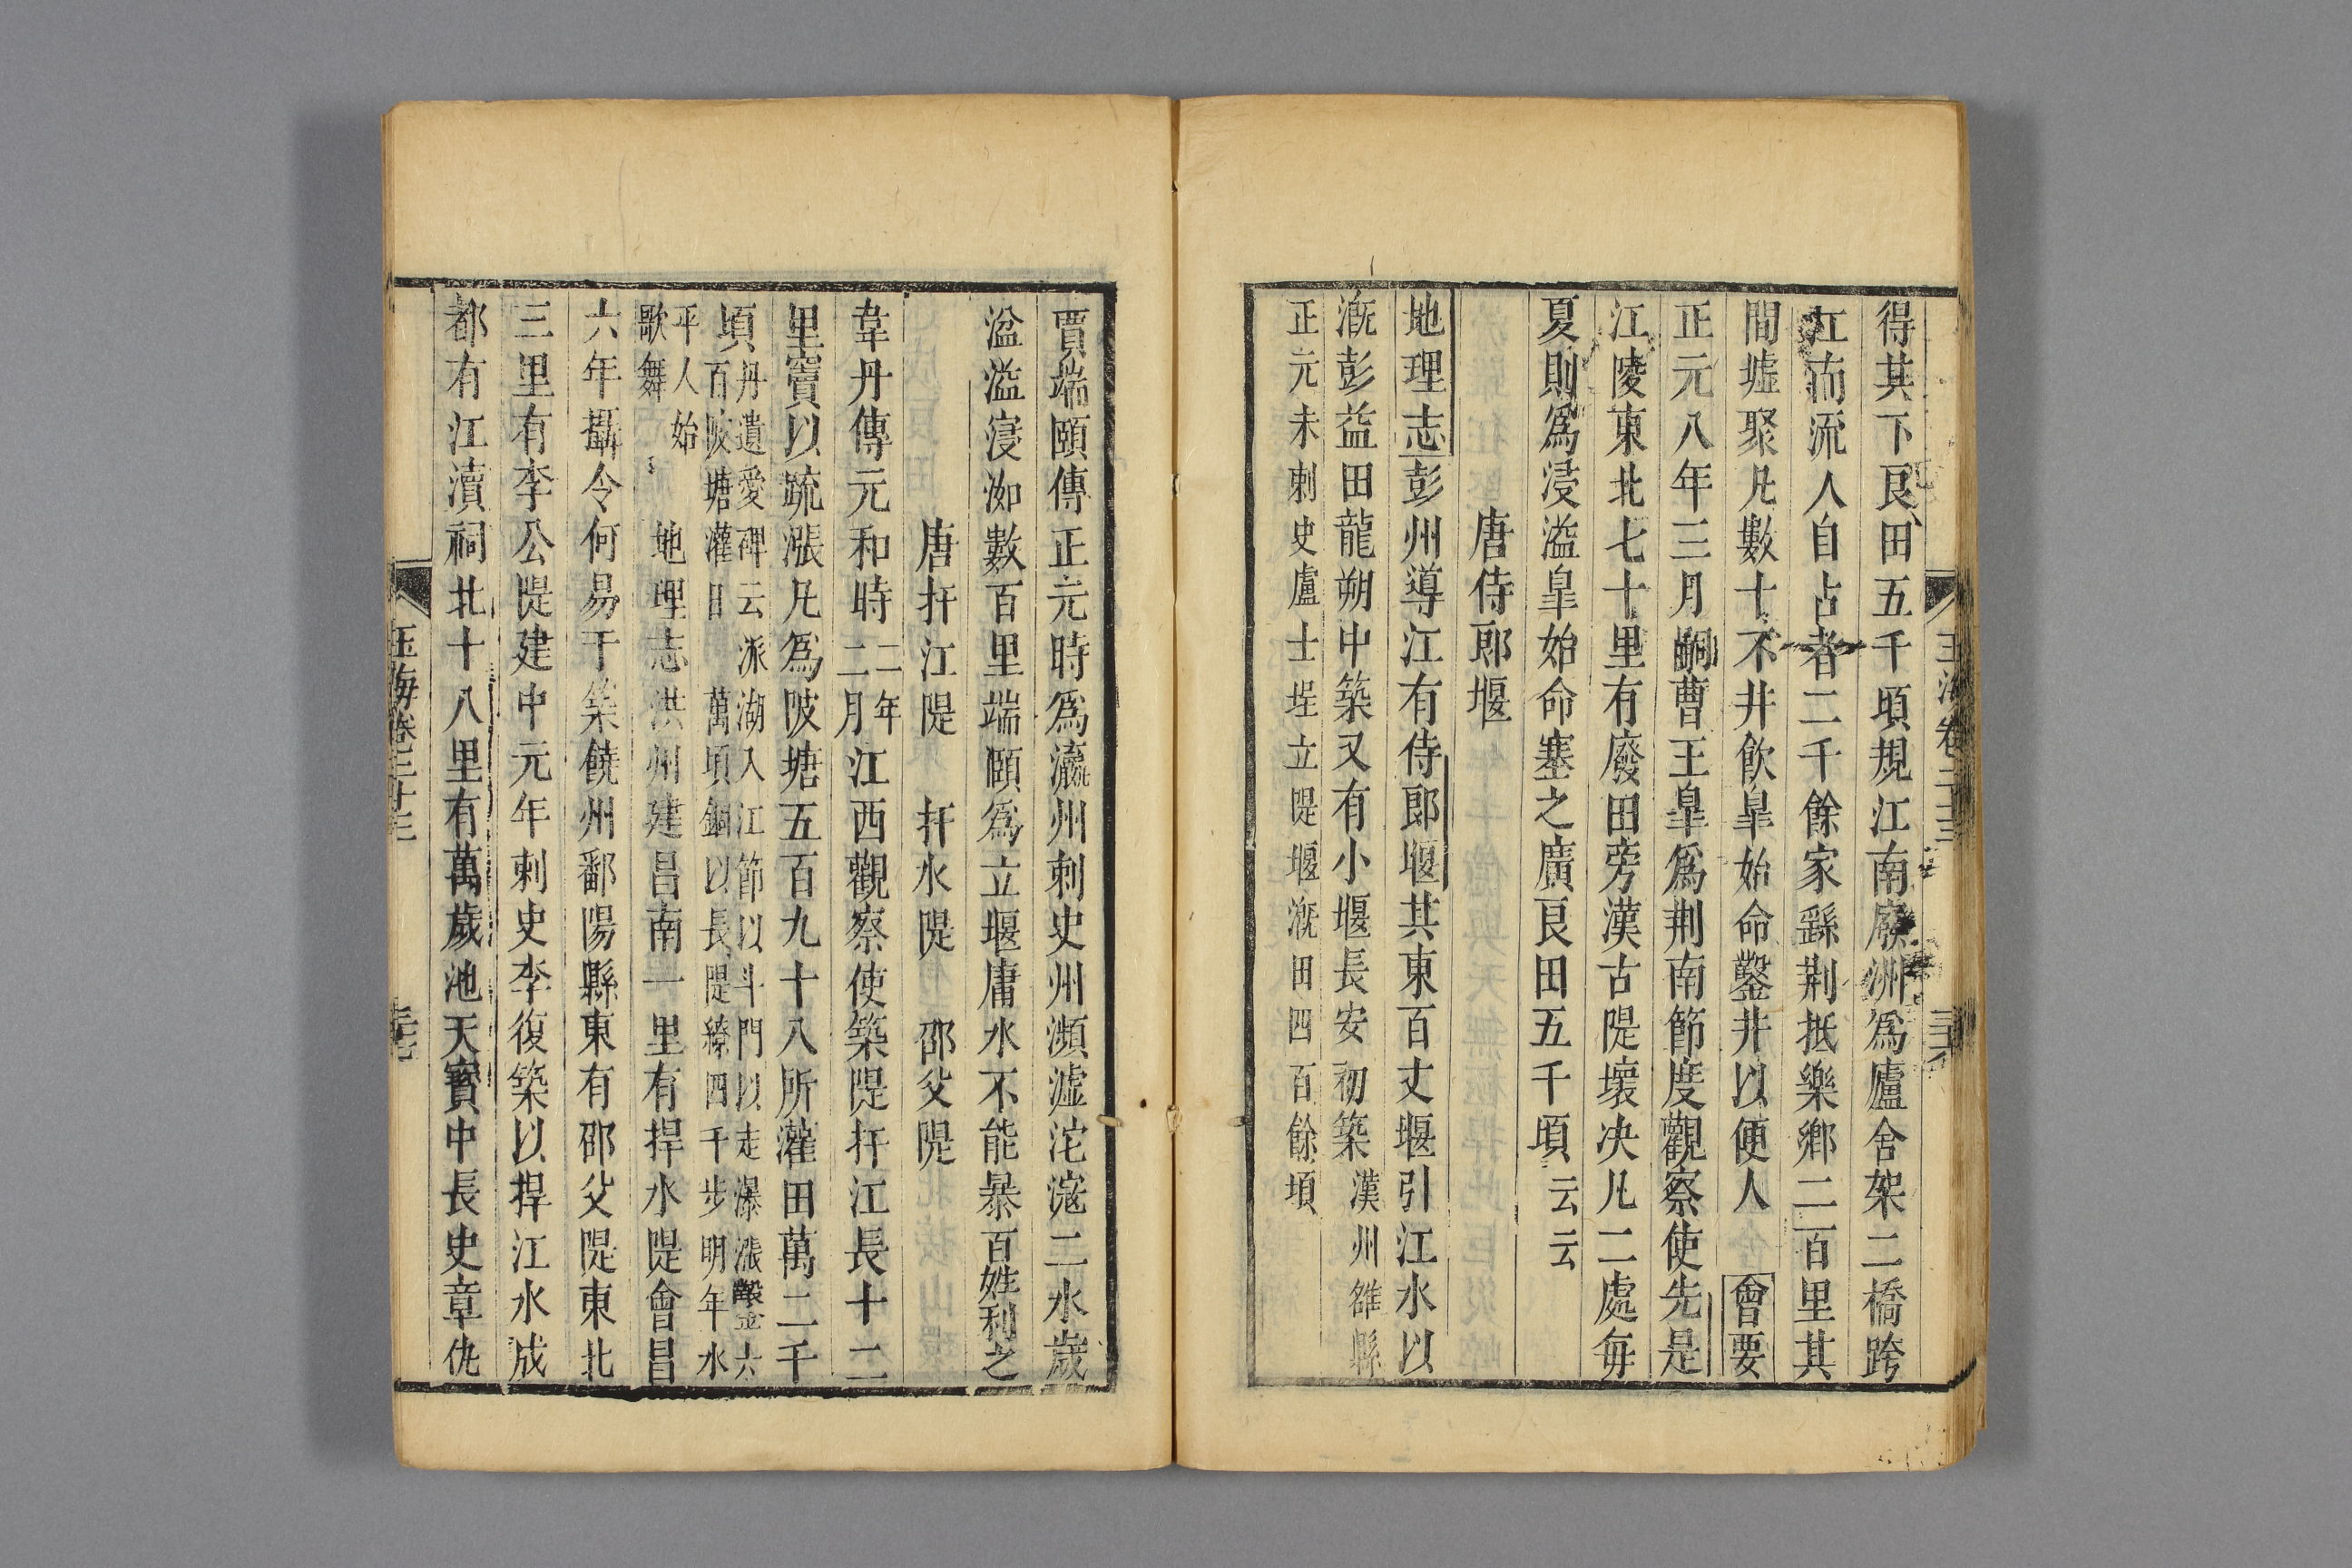 得其下良田五千頃規江南廢洲爲廬舍架二橋跨
江而流人自占者二千餘家繇荆抵樂鄉二百里其
間墟聚凡數十不井飲皐始命鑿井以便人 會要
正元八年三月嗣曹王皐爲荆南節度觀察使先是
江陵東北七十里有廢田旁漢古隄壞决凡二處每
夏則爲浸溢皐始命塞之廣良田五千頃云云
唐侍郎堰
地理志彭州導江有侍郎堰其東百丈堰引江水以
漑彭益田龍朔中築又有小堰長安初築 漢州雒縣
正元末刺史盧士珵立隄堰漑田四百餘頃
玉海卷二十三
賈端頤傳正元時爲瀛州刺史州瀕滹沱滱二水歲
湓溢寖洳數百里端頤爲立堰庸水不能暴百姓利之
唐扞江隄 扞水隄 邵父隄
韋丹傳元和時二年二月江西觀察使築隄扞江長十二
里竇以疏漲凡爲陂塘五百九十八所灌田萬二千
頃丹遺愛碑云派湖入江節以斗門以走瀑漲鑿六
百陂塘灌田萬頃銅以長隄繚四千步明年水
平人始
歌舞 地理志洪州建昌南一里有捍水隄會昌
六年攝令何易于築饒州鄱陽縣東有邵父隄東北
三里有李公隄建中元年刺史李復築以捍江水成
都有江瀆祠北十八里有萬歲池天寶中長史章仇
玉海卷二十三